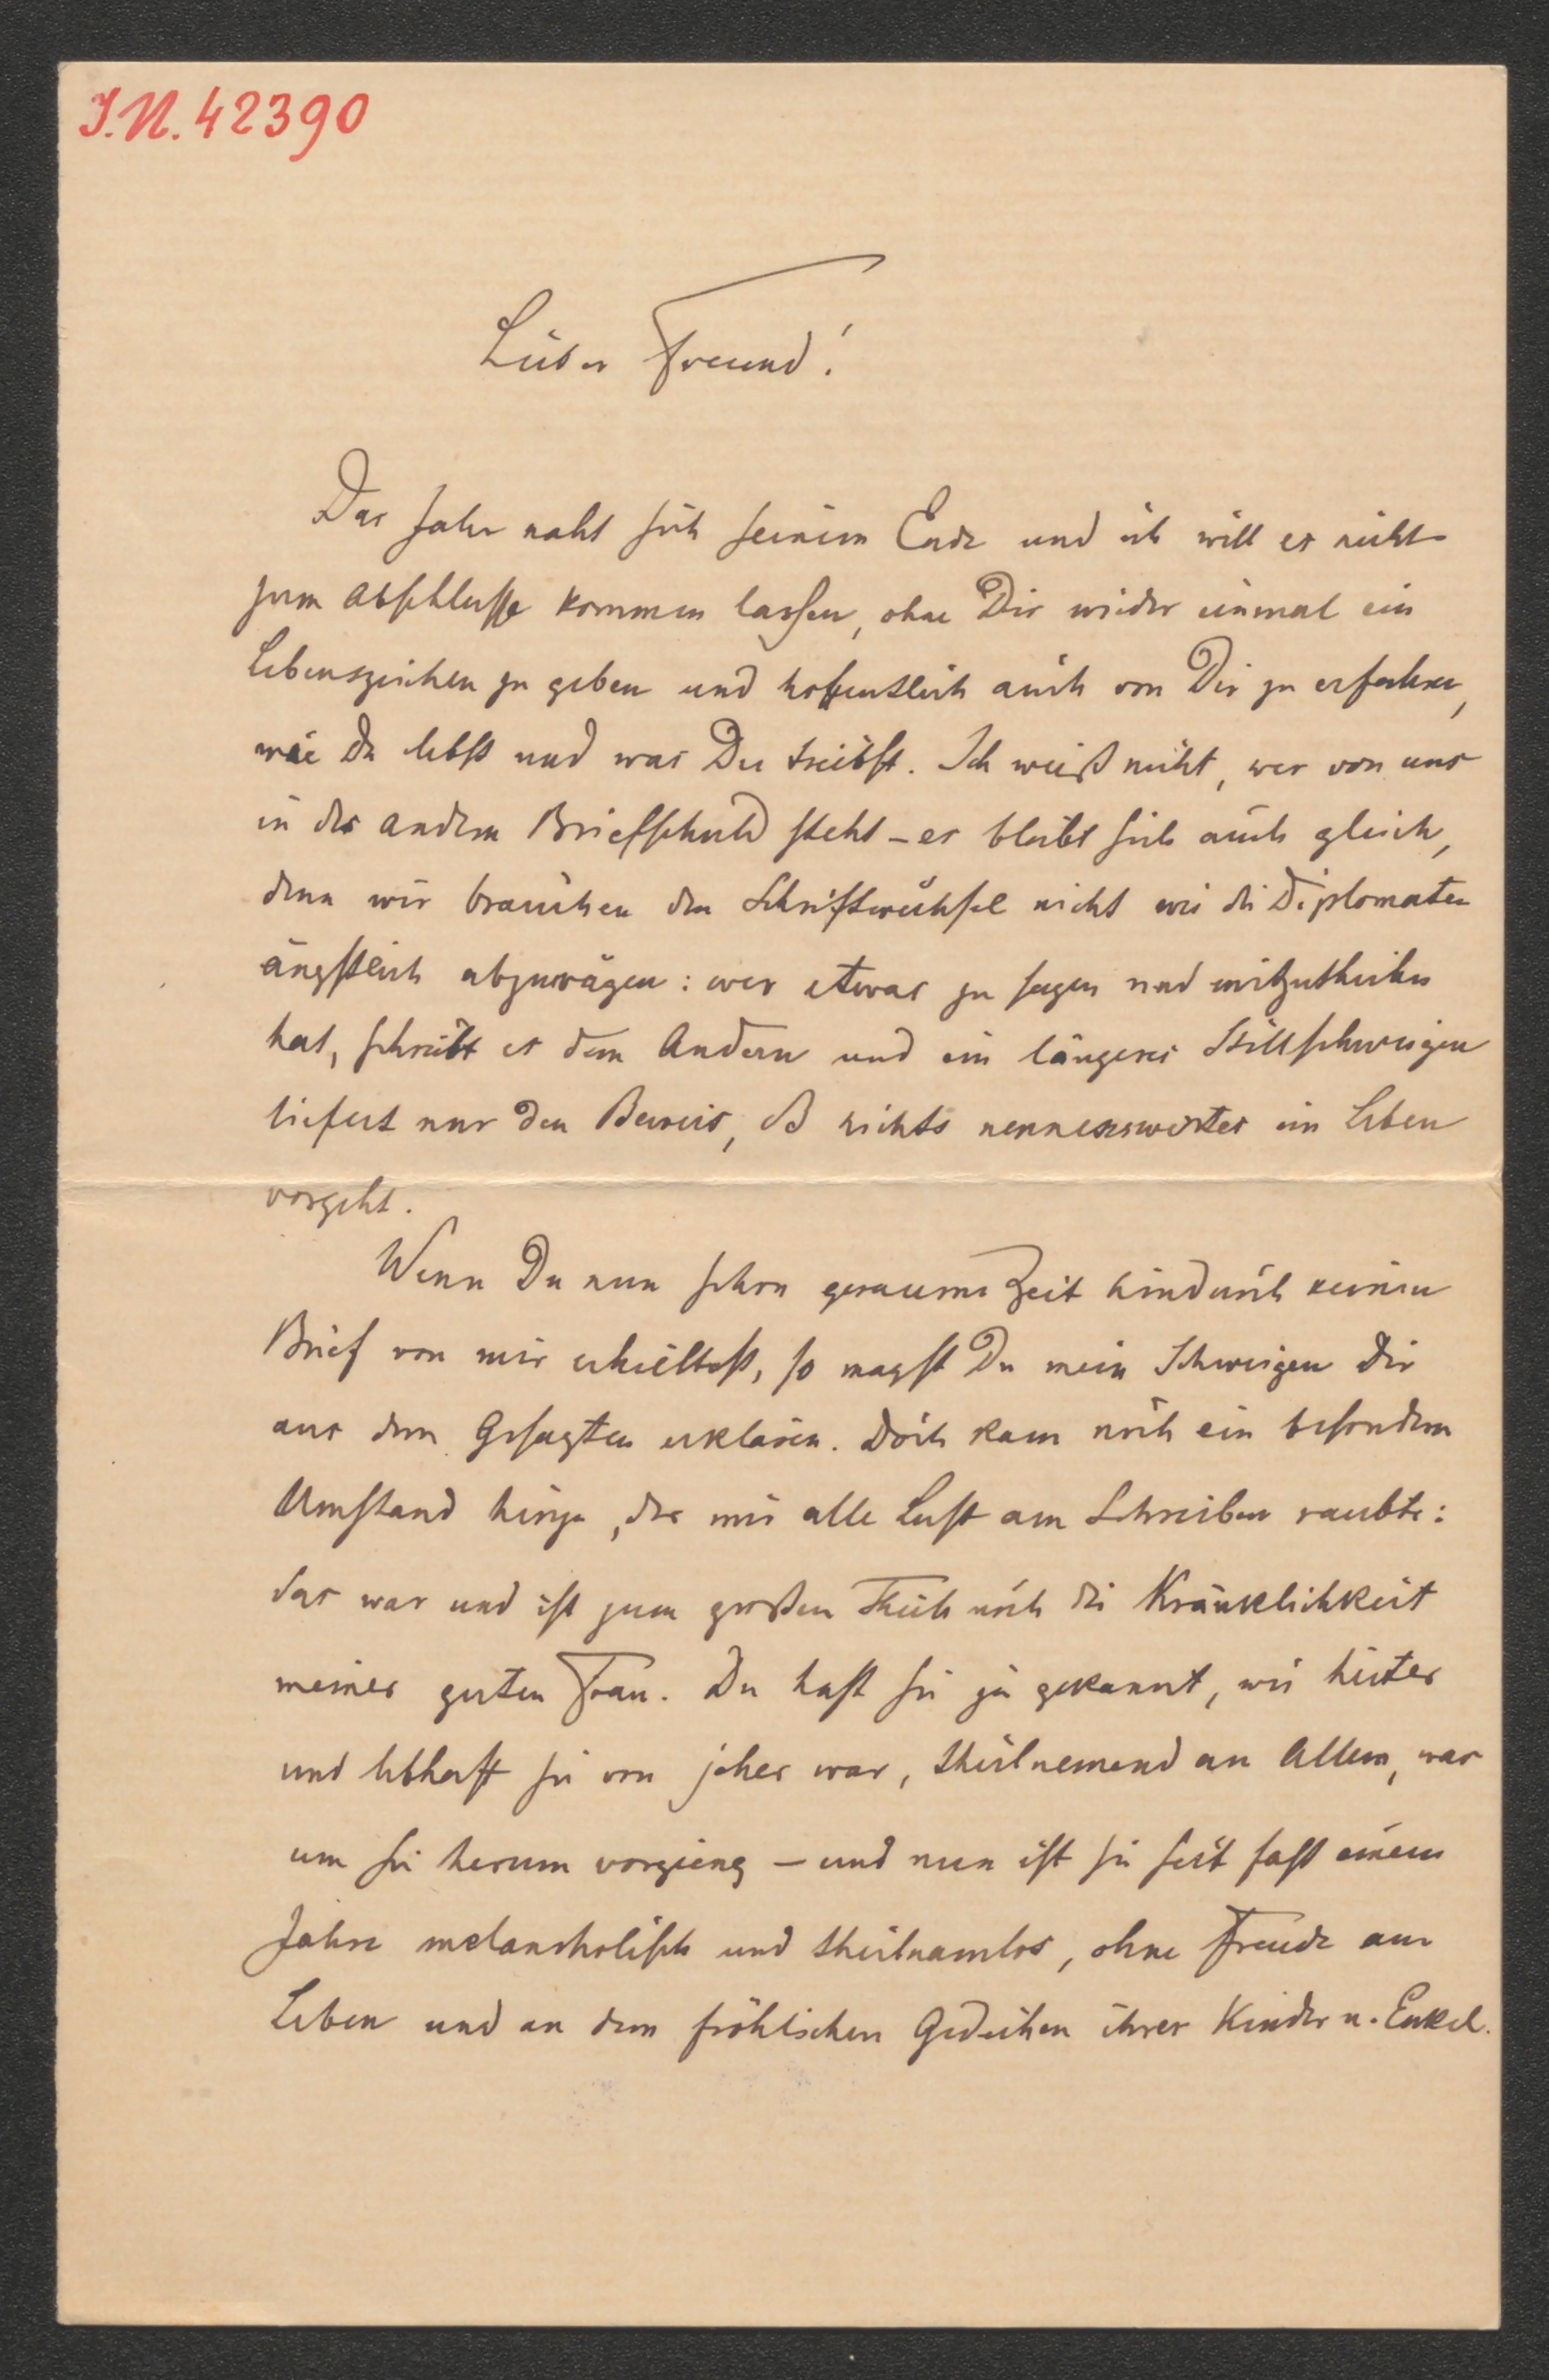 I.N. 42390
Lieber Freund!
Das Jahr naht sich seinem Ende und ich will es nicht
zum Abschlusse kommen lassen, ohne Dir wieder einmal ein
Lebenszeichen zu geben und hoffentlich auch von Dir zu erfahren,
wie Du lebst und was Du treibst. Ich weiß nicht, wer von uns
in des andern Briefschuld steht – es bleibt sich auch gleich,
denn wir brauchen den Schriftwechsel nicht wie die Diplomaten
ängstlich abzuwägen: wer etwas zu sagen und mitzutheilen
hat, schreibt es dem Andern und ein längeres Stillschweigen
liefert nur den Beweis, dß nichts nennenswertes im Leben
vorgeht.
Wenn Du nun schon geraume Zeit hindurch keinen
Brief von mir erhieltest, so magst Du mein Schweigen Dir
aus dem Gesagten erklären. Doch kam noch ein besonderer
Umstand hinzu, der mir alle Lust am Schreiben raubte:
das war und ist zum großen Theile noch die Kränklichkeit
meiner guten Frau. Du hast sie ja gekannt, wie heiter
und lebhaft sie von jeher war, theilnemend an Allem, was
um sie herum vorgieng – und nun ist sie seit fast einem
Jahre melancholisch und theilnamlos, ohne Freude am
Leben und an dem fröhlichen Gedeihen ihrer Kinder u. Enkel.